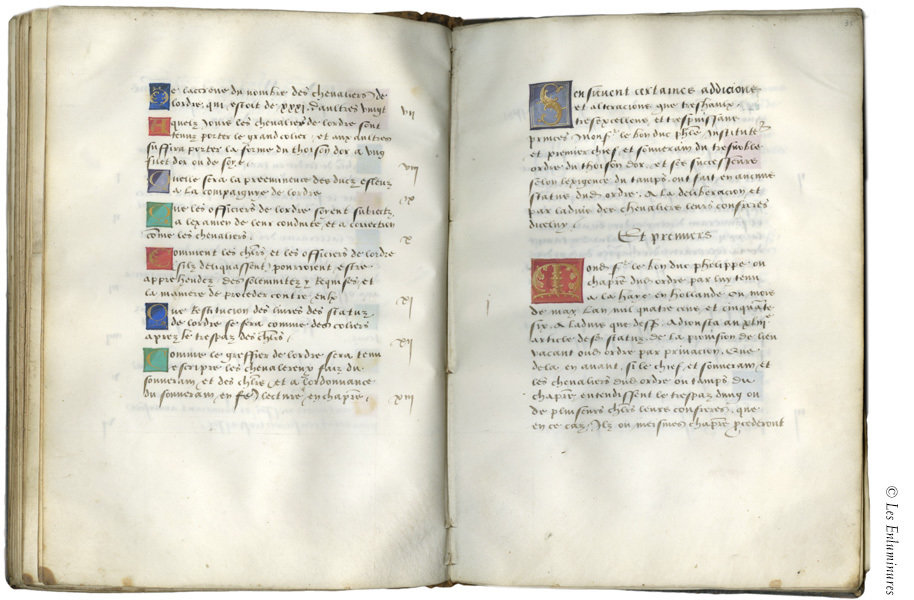 De lacreue du nombre des chevaliers de
lordre, qui estoit de xxxi daultres vingt
vii
A quelz Jours les chevaliers de lordre sont
tenuz porter le grand colier, et aux aultres
suffira porter la ferme du thoison dor a ung
fillet dor ou de soye.
viii
Quelle sera la preeminence des ducz esleuz
a La compaignie de lordre
ix
Que les officiers de lordre soyent subiectz
a lexamen de leur conduite, et a correction
come les chevaliers.
x
Comment les chlrs et les officiers de lordre
silz deliquassent, pourroient estre
apprehendez. Des solemnitez y Requises, et
la maniere de proceder contre eulx
xi
Que Restitucion des livres des statuz
de lordre se fera comme des coliers
aprez le trespaz des chlrs.
xii
Comme le greffier de lordre sera tenu
escripre les chevalereux faiz du
souverain, et des chlrs, et a lordonnance
du souverain, en fe lecture, en chapre.
xiii
35
Sensuivent certaines addicions
et alteracions que treshaulx,
tresexcellens, et trespuissans
princes Mons le bon duc phle Instituteur
et premier chief, et souverain du tresnoble
ordre du thoison dor, et ses successeurs
selon lexigence du tamps, ont fait en aucuns
statuz dud ordre. A la deliberacion et
par ladvis des chevaliers leurs confreres
dicelluy.
Et premiers
Mond sr le bon duc philippe ou
chapre dud ordre par luy tenu
a la haye en hollande ou mois
de may Lan mil quatre cens et cinquante
six. A ladvis que dess. Adiousta au xliiie
article des statuz de la provision de lieu
vacant oud ordre par privacion. Que
dela en avant, si le chief, et souverain, et
les chevaliers dud ordre ou tamps du
chapre entendissent le trespaz dung ou
de plusieurs chlrs leurs confreres, que
en ce caz, Ilz ou meismes chapre procederont
© Les Enluminures